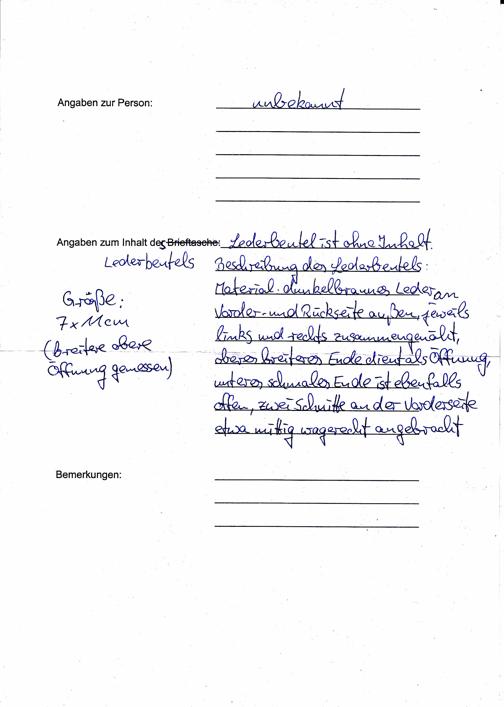 Angaben zur Person: unbekannt
Angaben zum Inhalt des Brieftasche: Lederbeutel ist ohne Inhalt.
Lederbeutels
Größe:
7 x 11cm
(breitere obere
Öffnung gemessen)
Beschreibung des Lederbeutels:
Material: dunkelbraunes Leder an
Vorder- und Rückseite außen, jeweils
links und rechts zusammengenäht,
oberes breiteres Ende dient als Öffnung,
unteres schmales Ende ist ebenfalls
offen, zwei Schnitte an der Vorderseite
etwa mittig wagerecht angebracht
Bemerkungen: